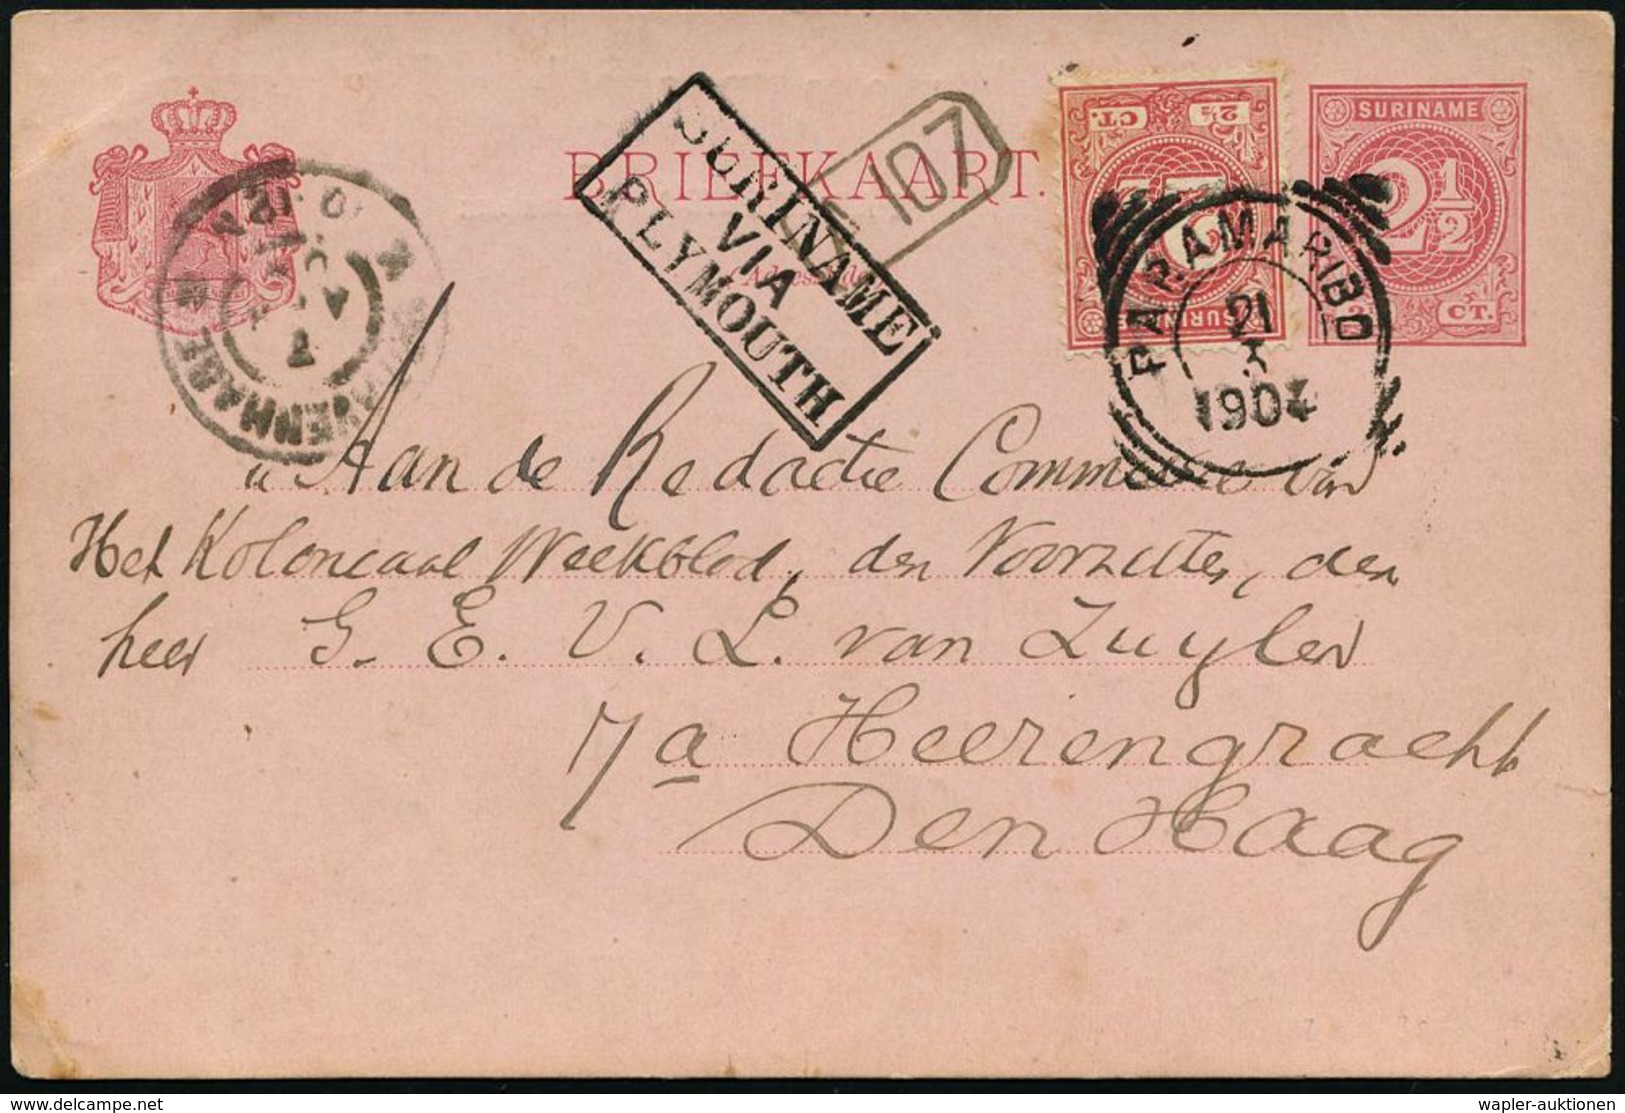 SURINAME
2½
CT.
BRIEFKAART.
SURINAME
VIA
PLYMOUTH
107
2½
CT.
PARAMARIBO
21
3
1904
Aan de Redactie Commissie van
Het Koloniaal Weekblad, den Voorzitter, den
heer G. E. V. L. van Zuylen
7a Heerengracht
Den Haag
www.delcampe.net
wapler-auktionen